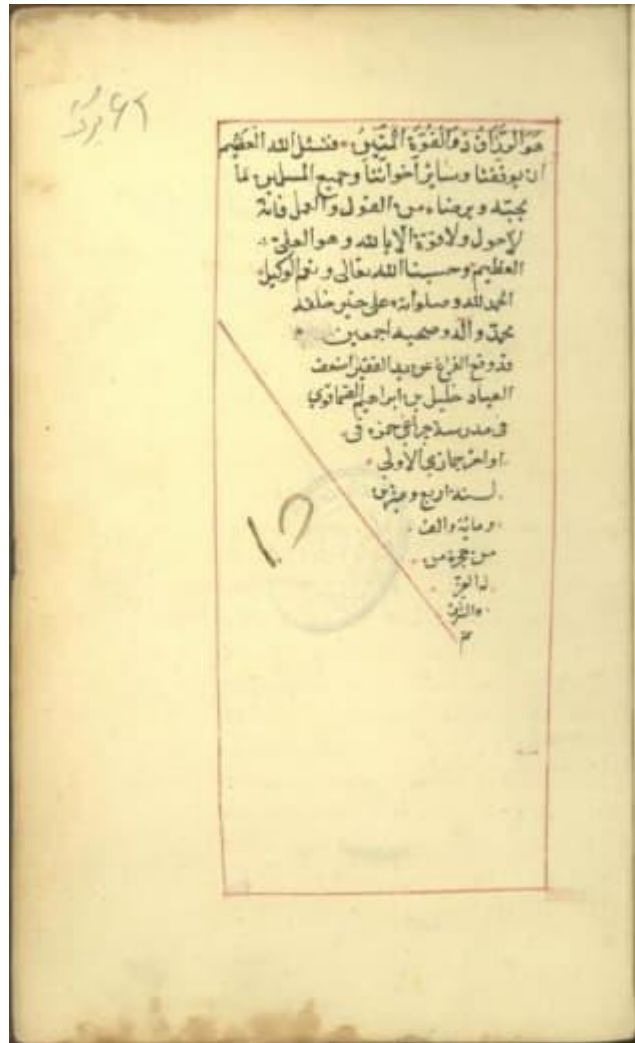 هو الرزاق ذو القوة المتين فنسئل الله العظيم
ان يوفقنا وسائر اخواننا وجميع المسلمين لما
يحبه ويرضاه من القول والعمل فانه
لا حول ولا قوة الا بالله وهو العلي
العظيم وحسبنا الله تعالى ونعم الوكيل
الحمد لله وصلواته على خير خلقه
محمد واله وصحبه اجمعين
قد وقع الفراغ عن يد الفقير اضعف
العباد خليل بن ابراهيم
في مدرسة في
اواخر جمازي الاولى
لسنة اربع وعشرين
ومائة والف
من هجرة من
له العز
والشرف
تم